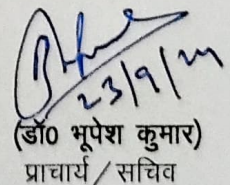 23/9/24
(डॉ0 भूपेश कुमार)
प्राचार्य / सचिव